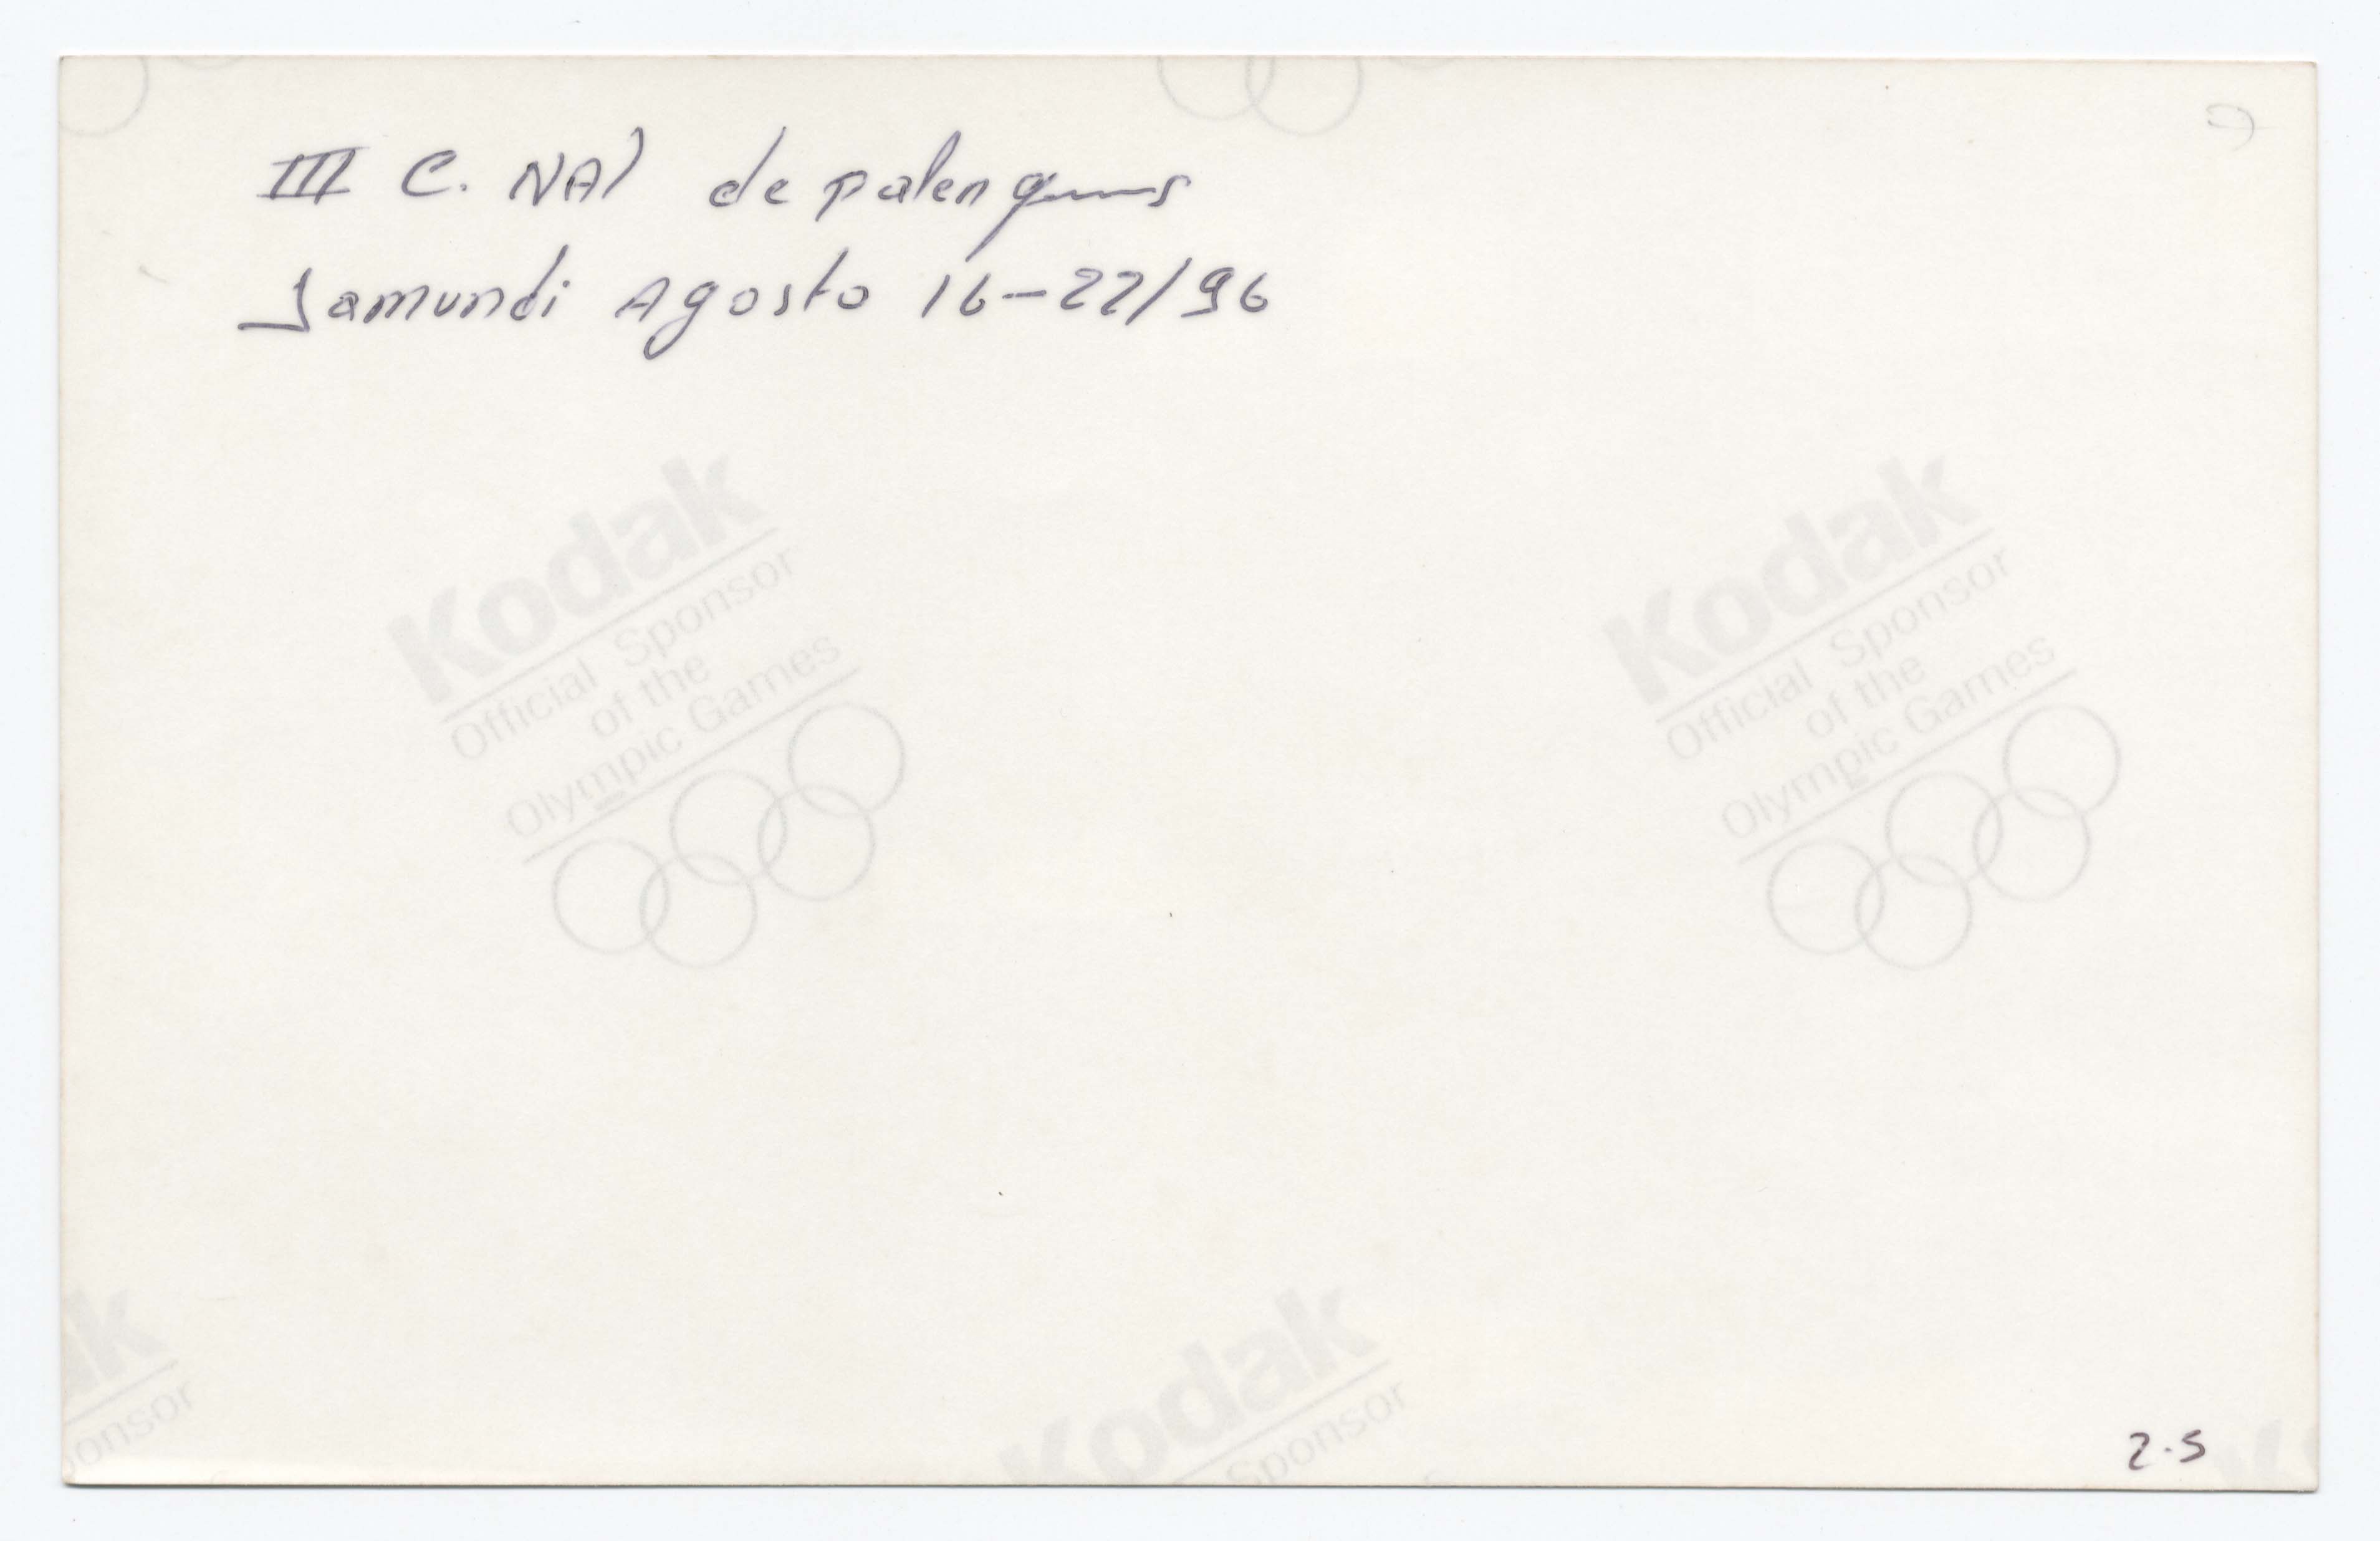 III C. NAl de palenques
Jamundi Agosto 16-22/96
Kodak
Official Sponsor
of the
Olympic Games
Kodak
Official Sponsor
of the
Olympic Games
ak
onsor
Kodak
Sponsor
2.5